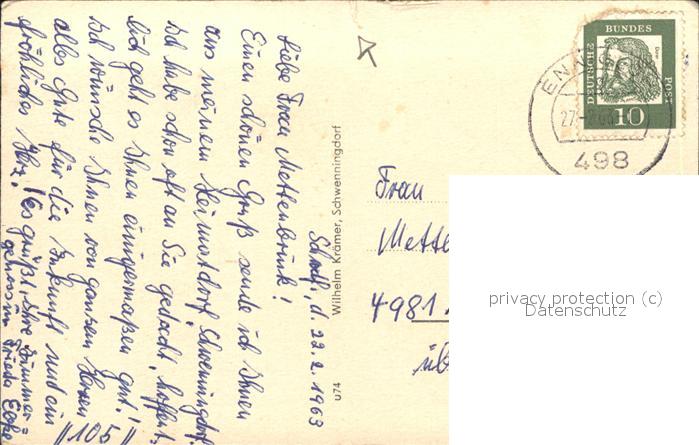 Schw., d. 22.2.1963
Liebe Frau Mettenbrink!
Einen schönen Gruß sende ich Ihnen
aus meinem Heimatdorf Schwenningdorf.
Ich habe schon oft an Sie gedacht, hoffent-
lich geht es Ihnen einigermaßen gut!
Ich wünsche Ihnen von ganzem Herzen
alles Gute für die Zukunft und ein
fröhliches Herz! Es grüßt, Ihre Zimmer-
genossin Frieda
"105"
Wilhelm Krämer, Schwenningdorf
u74
Frau
Mette
4981
üb
DEUTSCHE BUNDES POST
10
ENN
27.-2.63
498
privacy protection (c)
Datenschutz